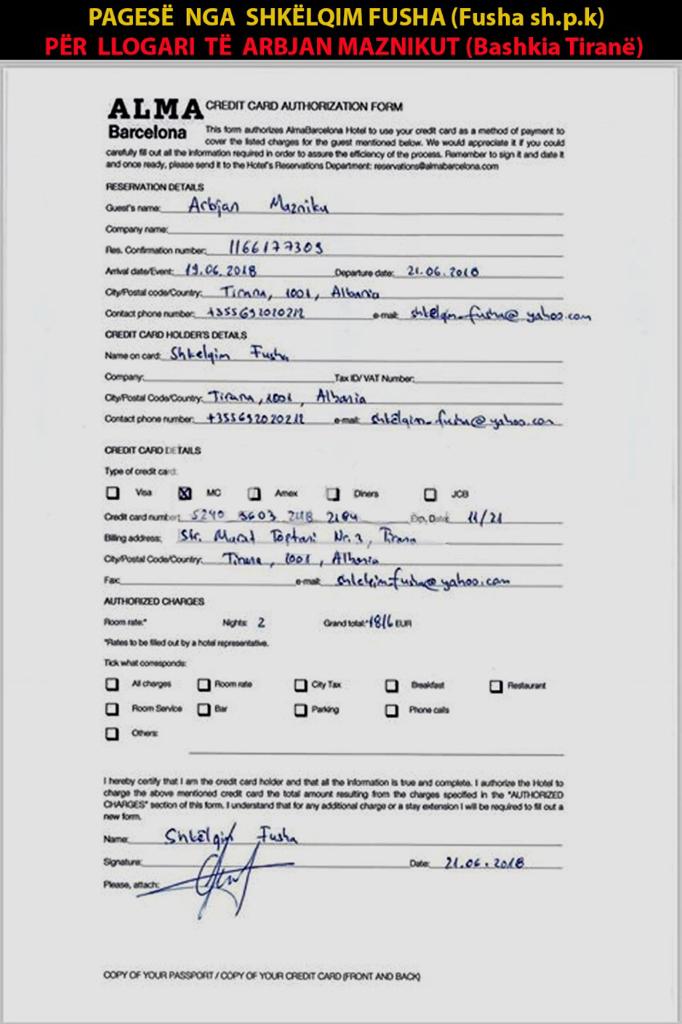 PAGESË NGA SHKËLQIM FUSHA (Fusha sh.p.k)
PËR LLOGARI TË ARBJAN MAZNIKUT (Bashkia Tiranë)
ALMA CREDIT CARD AUTHORIZATION FORM
Barcelona
This form authorizes AlmaBarcelona Hotel to use your credit card as a method of payment to
cover the listed charges for the guest mentioned below. We would appreciate it if you could
carefully fill out all the information required in order to assure the efficiency of the process. Remember to sign it and date it
and once ready, please send it to the Hotel's Reservations Department: reservations@almabarcelona.com
RESERVATION DETAILS
Guest's name: Arbjan Mazniku
Company name:
Res. Confirmation number: 1166177309
Arrival date/Event: 19.06.2018 Departure date: 21.06.2018
City/Postal code/Country: Tirana, 1001, Albania
Contact phone number: +355692020212 e-mail: shkelqim_fusha@yahoo.com
CREDIT CARD HOLDER'S DETAILS
Name on card: Shkelqim Fusha
Company: Tax ID/VAT Number:
City/Postal Code/Country: Tirana, 1001, Albania
Contact phone number: +355692020212 e-mail: shkëlqim_fusha@yahoo.com
CREDIT CARD DETAILS
Type of credit card:
Visa MC Amex Diners JCB
Credit card number: Exp. Date: 11/21
Billing address: Str. Murat Toptani Nr. 3, Tirana
City/Postal Code/Country: Tirana, 1001, Albania
Fax: e-mail: shkelqim_fusha@yahoo.com
AUTHORIZED CHARGES
Room rate:* Nights: 2 Grand total:* 1816 EUR
*Rates to be filled out by a hotel representative.
Tick what corresponds:
All charges Room rate City Tax Breakfast Restaurant
Room Service Bar Parking Phone calls
Others:
I hereby certify that I am the credit card holder and that all the information is true and complete. I authorize the Hotel to
charge the above mentioned credit card the total amount resulting from the charges specified in the "AUTHORIZED
CHARGES" section of this form. I understand that for any additional charge or a stay extension I will be required to fill out a
new form.
Name: Shkëlqim Fusha
Signature: Date: 21.06.2018
Please, attach:
COPY OF YOUR PASSPORT / COPY OF YOUR CREDIT CARD (FRONT AND BACK)